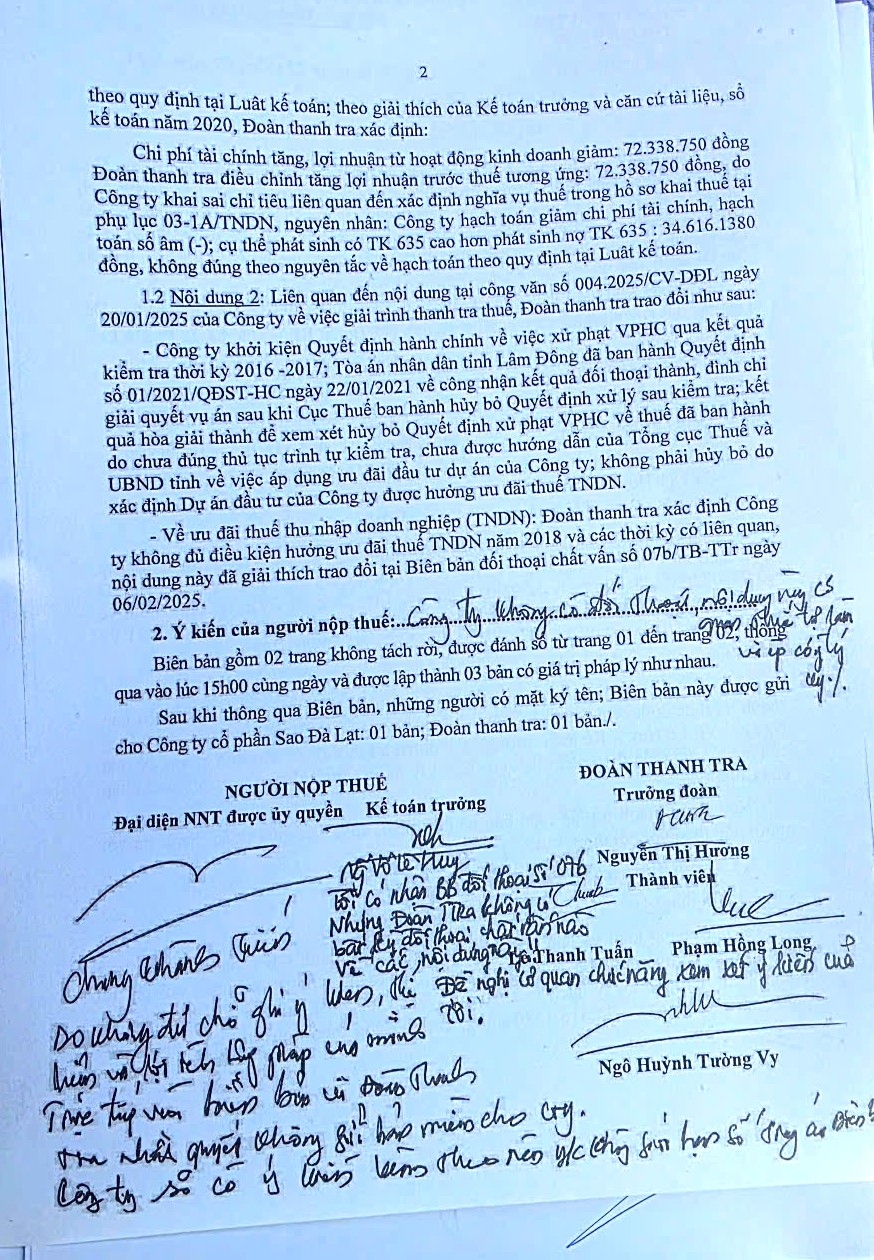 2
theo quy định tại Luât kế toán; theo giải thích của Kế toán trưởng và căn cứ tài liệu, sổ
kế toán năm 2020, Đoàn thanh tra xác định:
Chi phí tài chính tăng, lợi nhuận từ hoạt động kinh doanh giảm: 72.338.750 đồng
Đoàn thanh tra điều chỉnh tăng lợi nhuận trước thuế tương ứng: 72.338.750 đồng, do
Công ty khai sai chỉ tiêu liên quan đến xác định nghĩa vụ thuế trong hồ sơ khai thuế tại
phụ lục 03-1A/TNDN, nguyên nhân: Công ty hạch toán giảm chi phí tài chính, hạch
toán số âm (-); cụ thể phát sinh có TK 635 cao hơn phát sinh nợ TK 635 : 34.616.1380
đồng, không đúng theo nguyên tắc về hạch toán theo quy định tại Luât kế toán.
1.2 Nội dung 2: Liên quan đến nội dung tại công văn số 004.2025/CV-DĐL ngày
20/01/2025 của Công ty về việc giải trình thanh tra thuế, Đoàn thanh tra trao đổi như sau:
- Công ty khởi kiện Quyết định hành chính về việc xử phạt VPHC qua kết quả
kiểm tra thời kỳ 2016 -2017; Tòa án nhân dân tỉnh Lâm Đồng đã ban hành Quyết định
số 01/2021/QĐST-HC ngày 22/01/2021 về công nhận kết quả đối thoại thành, đình chỉ
giải quyết vụ án sau khi Cục Thuế ban hành hủy bỏ Quyết định xử lý sau kiểm tra; kết
quả hòa giải thành để xem xét hủy bỏ Quyết định xử phạt VPHC về thuế đã ban hành
do chưa đúng thủ tục trình tự kiểm tra, chưa được hướng dẫn của Tổng cục Thuế và
UBND tỉnh về việc áp dụng ưu đãi đầu tư dự án của Công ty; không phải hủy bỏ do
xác định Dự án đầu tư của Công ty được hưởng ưu đãi thuế TNDN.
- Về ưu đãi thuế thu nhập doanh nghiệp (TNDN): Đoàn thanh tra xác định Công
ty không đủ điều kiện hưởng ưu đãi thuế TNDN năm 2018 và các thời kỳ có liên quan,
nội dung này đã giải thích trao đổi tại Biên bản đối thoại chất vấn số 07b/TB-TTr ngày
06/02/2025.
2. Ý kiến của người nộp thuế: Công ty không có đối thoại, nội dung này cơ
quan thuế tự làm
và ép công ty
Biên bản gồm 02 trang không tách rời, được đánh số từ trang 01 đến trang 02; thông
qua vào lúc 15h00 cùng ngày và được lập thành 03 bản có giá trị pháp lý như nhau.
Sau khi thông qua Biên bản, những người có mặt ký tên; Biên bản này được gửi
cho Công ty cổ phần Sao Đà Lạt: 01 bản; Đoàn thanh tra: 01 bản./.
NGƯỜI NỘP THUẾ
Đại diện NNT được ủy quyền Kế toán trưởng
ĐOÀN THANH TRA
Trưởng đoàn
Nguyễn Thị Hương
Thành viên
Ng Võ Lê Huy
Tôi có nhận BB đối thoại số 07b
Nhưng Đoàn TTra không có
bất kỳ đối thoại, chất vấn nào
về các nội dung này
Đề nghị cơ quan chức năng xem xét ý kiến của
tôi.
Thanh Tuấn
Phạm Hồng Long
Ngô Huỳnh Tường Vy
Do không đủ chỗ ghi ý kiến,
Trực tiếp vào biên bản và Đoàn Thanh
tra nhất quyết không gửi bản mềm cho cty.
Công ty sẽ có ý kiến kèm theo nên